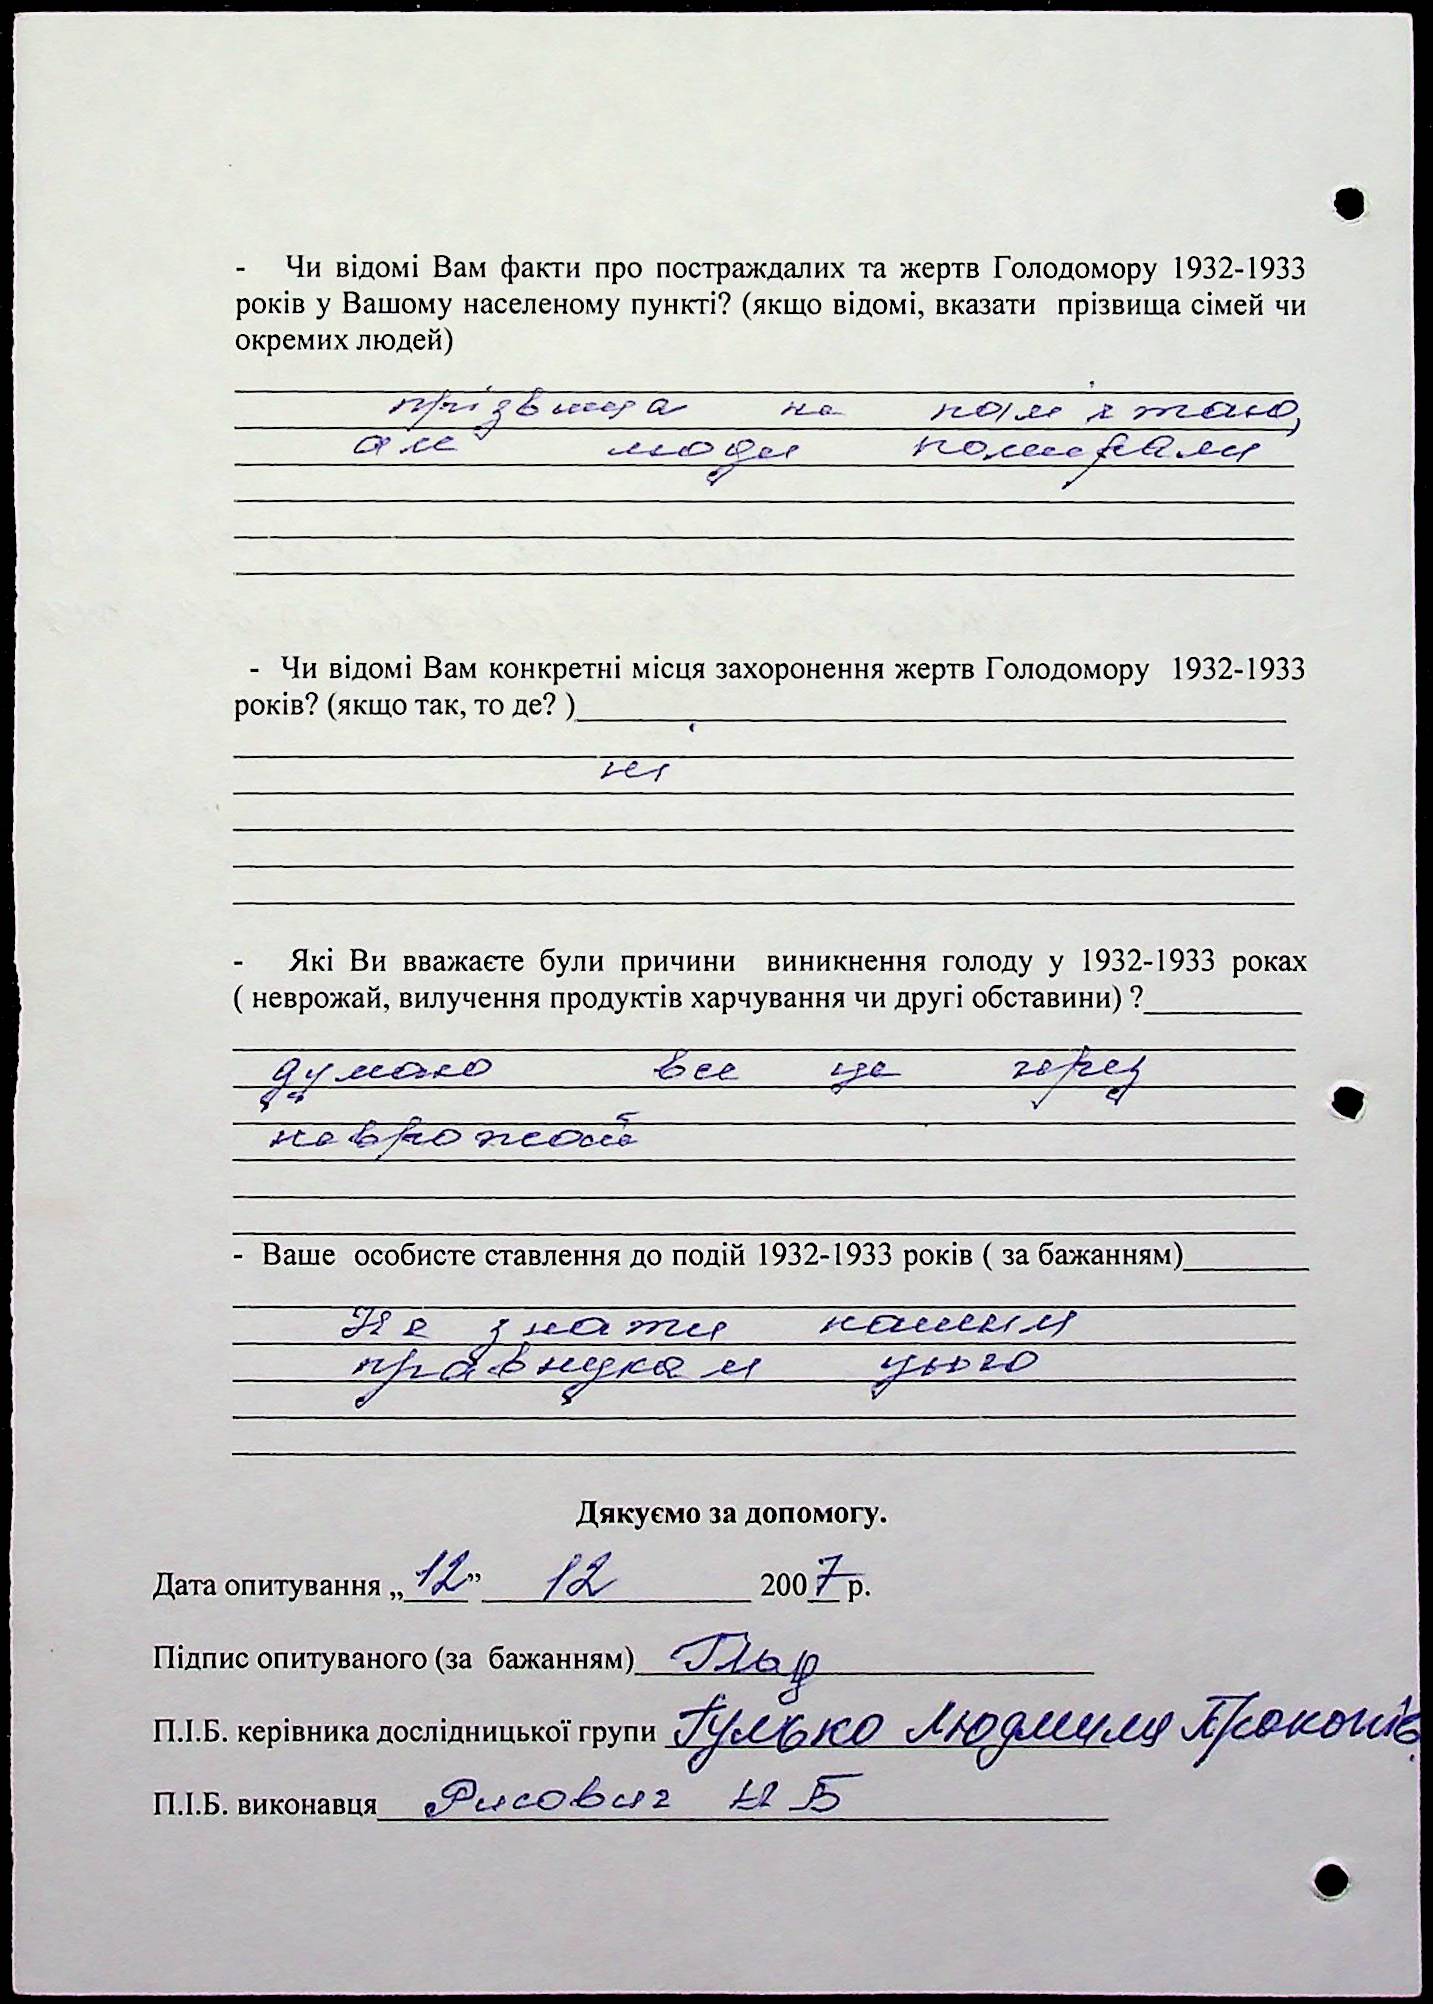 - Чи відомі Вам факти про постраждалих та жертв Голодомору 1932-1933
років у Вашому населеному пункті? (якщо відомі, вказати прізвища сімей чи
окремих людей)
прізвища не пам'ятаю,
але люди помирали
- Чи відомі Вам конкретні місця захоронення жертв Голодомору 1932-1933
років? (якщо так, то де? )
ні
- Які Ви вважаєте були причини виникнення голоду у 1932-1933 роках
( неврожай, вилучення продуктів харчування чи другі обставини) ?
думаю все це через
неврожай
- Ваше особисте ставлення до подій 1932-1933 років ( за бажанням)
Не знати нашим
правнукам цього
Дякуємо за допомогу.
Дата опитування „12” 12 2007 р.
Підпис опитуваного (за бажанням)
П.І.Б. керівника дослідницької групи Гулько Людмила Прокопів
П.І.Б. виконавця Рисович Н Б